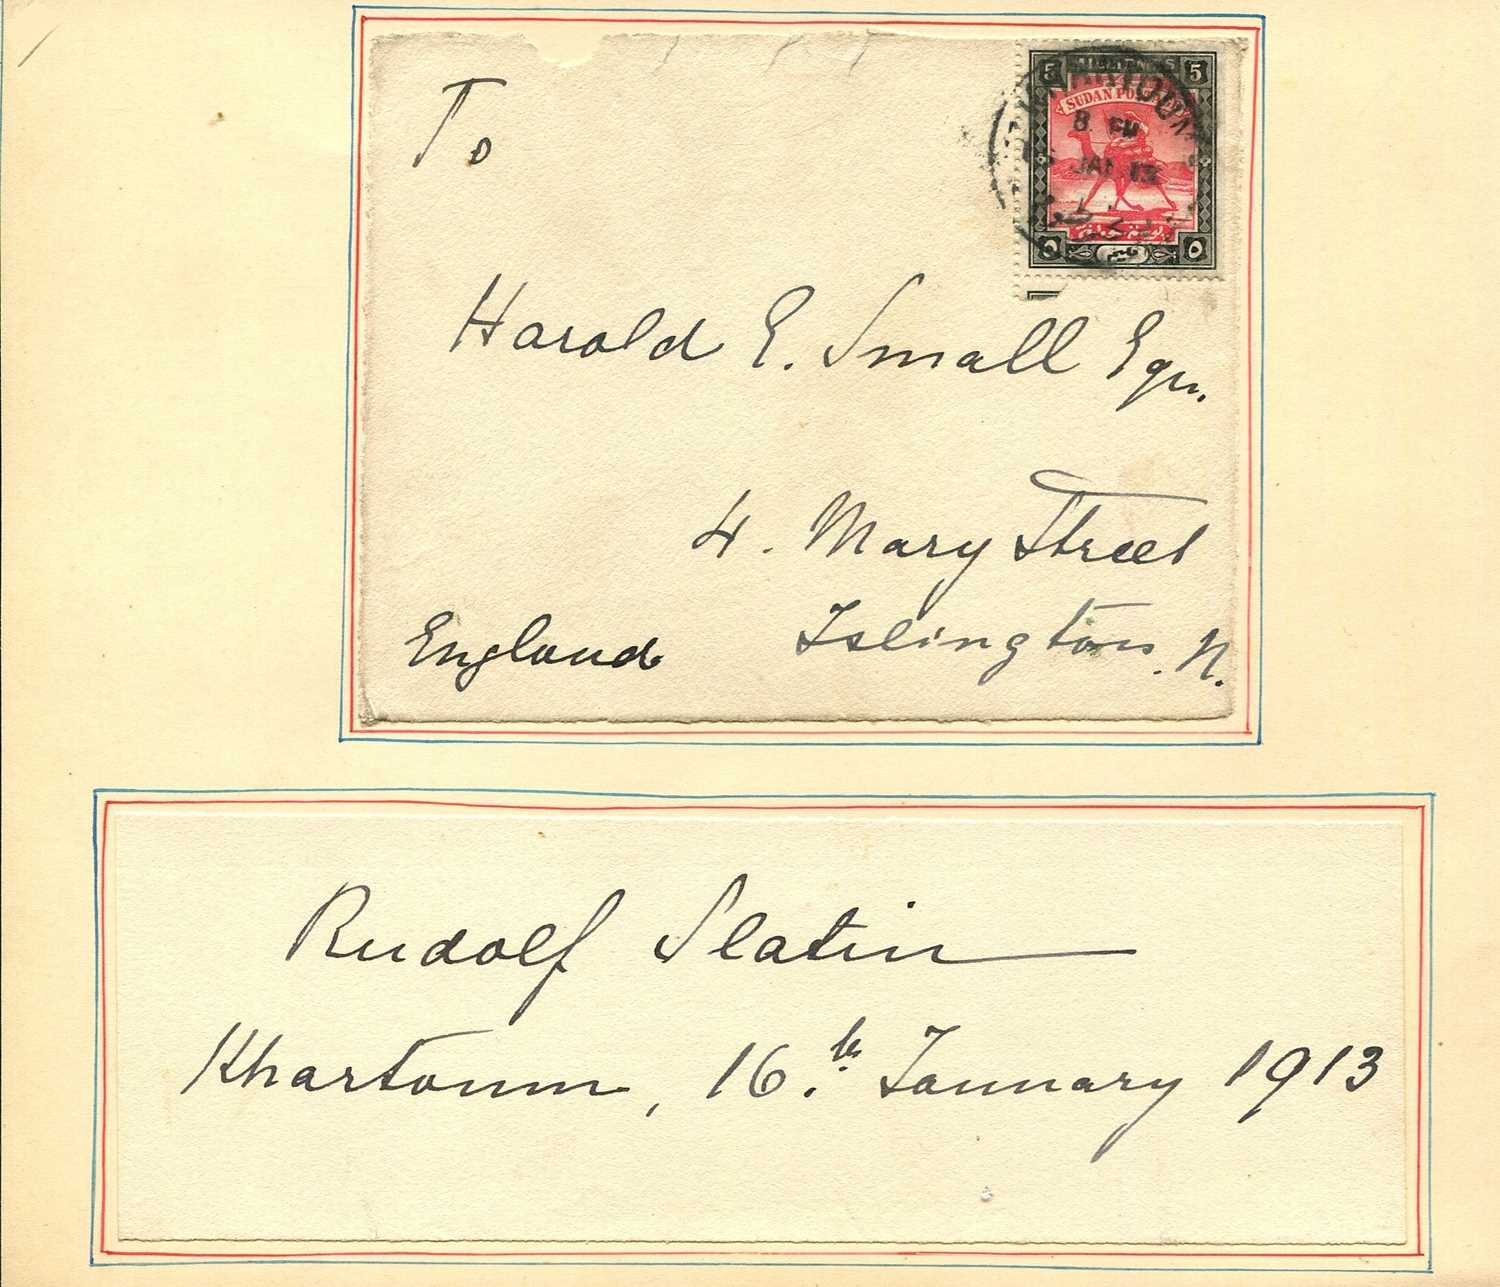 To
5 MILLIEMES 5
SUDAN POSTAGE
KHARTOUM
8 PM
JAN 13
٥ ٥
Harold E. Small Eqr.
4. Mary Street
Islington. N.
England
Rudolf Slatin
Khartoum, 16.th January 1913